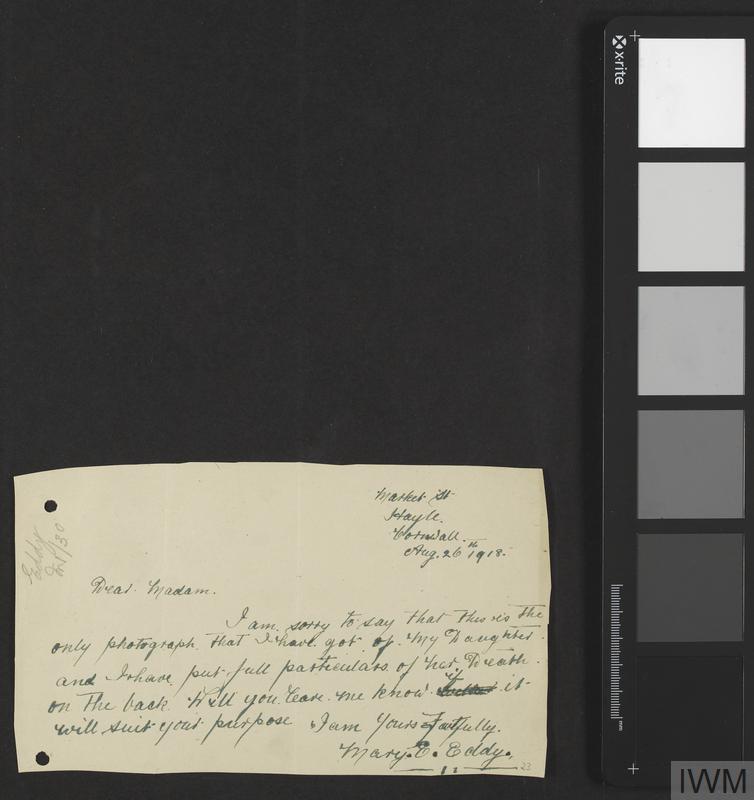 Market St
Hayle.
Cornwall.
Aug. 26th 1918.
Eddy
Dear Madam.
I am sorry to say that this is the
only photograph that I have got of My Daughter.
and I have put full particulars of her Death.
on the back Will you leave me know if it
will suit your purpose I am Yours Faitfully.
Mary. E. Eddy.
23
x·rite
mm
IWM